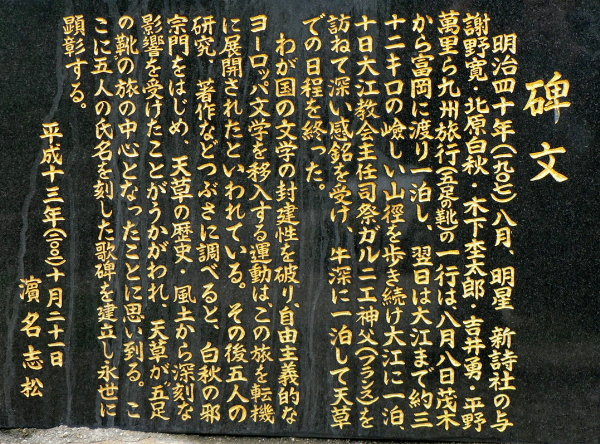 碑文
明治四十年(一九〇七)八月、明星 新詩社の与
謝野寛・北原白秋・木下杢太郎・吉井勇・平野
萬里ら九州旅行(五足の靴)の一行は、八月八日茂木
から富岡に渡り一泊し、翌日は大江まで約三
十二キロの嶮しい山徑を歩き続け大江に一泊
十日大江教会主任司祭ガルニエ神父(フランス)を
訪ねて深い感銘を受け、牛深に一泊して天草
での日程を終った。
わが国の文学の封建性を破り、自由主義的な
ヨーロッパ文学を移入する運動は、この旅を転機
に展開されたといわれている。その後五人の
研究、著作などつぶさに調べると、白秋の邪
宗門をはじめ、天草の歴史・風土から深刻な
影響を受けたことがうかがわれ、天草が五足
の靴の旅の中心となったことに思い到る。こ
こに五人の氏名を刻した歌碑を建立し永世に
顕彰する。
平成十三年(二〇〇一)十月二十一日
濵名志松